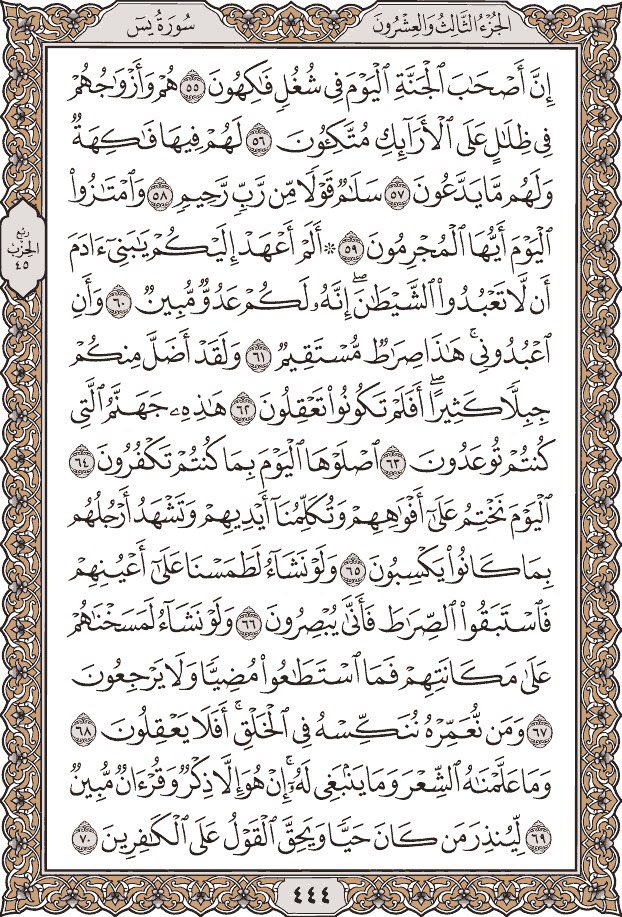 سُورَةُ يسٓ
الجُزْءُ الثَّالِثُ وَالعِشْرُونَ
إِنَّ أَصْحَٰبَ الْجَنَّةِ الْيَوْمَ فِى شُغُلٍ فَٰكِهُونَ ٥٥ هُمْ وَأَزْوَٰجُهُمْ
فِى ظِلَٰلٍ عَلَى الْأَرَآئِكِ مُتَّكِـُٔونَ ٥٦ لَهُمْ فِيهَا فَٰكِهَةٌ
وَلَهُم مَّا يَدَّعُونَ ٥٧ سَلَٰمٌ قَوْلًا مِّن رَّبٍّ رَّحِيمٍ ٥٨ وَامْتَٰزُوا
الْيَوْمَ أَيُّهَا الْمُجْرِمُونَ ٥٩ ۞ أَلَمْ أَعْهَدْ إِلَيْكُمْ يَٰبَنِىٓ ءَادَمَ
أَن لَّا تَعْبُدُوا الشَّيْطَٰنَ ۖ إِنَّهُۥ لَكُمْ عَدُوٌّ مُّبِينٌ ٦٠ وَأَنِ
اعْبُدُونِى ۚ هَٰذَا صِرَٰطٌ مُّسْتَقِيمٌ ٦١ وَلَقَدْ أَضَلَّ مِنكُمْ
جِبِلًّا كَثِيرًا ۖ أَفَلَمْ تَكُونُوا تَعْقِلُونَ ٦٢ هَٰذِهِۦ جَهَنَّمُ الَّتِى
كُنتُمْ تُوعَدُونَ ٦٣ اصْلَوْهَا الْيَوْمَ بِمَا كُنتُمْ تَكْفُرُونَ ٦٤
الْيَوْمَ نَخْتِمُ عَلَىٰٓ أَفْوَٰهِهِمْ وَتُكَلِّمُنَآ أَيْدِيهِمْ وَتَشْهَدُ أَرْجُلُهُم
بِمَا كَانُوا يَكْسِبُونَ ٦٥ وَلَوْ نَشَآءُ لَطَمَسْنَا عَلَىٰٓ أَعْيُنِهِمْ
فَاسْتَبَقُوا الصِّرَٰطَ فَأَنَّىٰ يُبْصِرُونَ ٦٦ وَلَوْ نَشَآءُ لَمَسَخْنَٰهُمْ
عَلَىٰ مَكَانَتِهِمْ فَمَا اسْتَطَٰعُوا مُضِيًّا وَلَا يَرْجِعُونَ
٦٧ وَمَن نُّعَمِّرْهُ نُنَكِّسْهُ فِى الْخَلْقِ ۖ أَفَلَا يَعْقِلُونَ ٦٨
وَمَا عَلَّمْنَٰهُ الشِّعْرَ وَمَا يَنۢبَغِى لَهُۥٓ ۚ إِنْ هُوَ إِلَّا ذِكْرٌ وَقُرْءَانٌ مُّبِينٌ
٦٩ لِّيُنذِرَ مَن كَانَ حَيًّا وَيَحِقَّ الْقَوْلُ عَلَى الْكَٰفِرِينَ ٧٠
ربع
الحزب
٤٥
٤٤٤